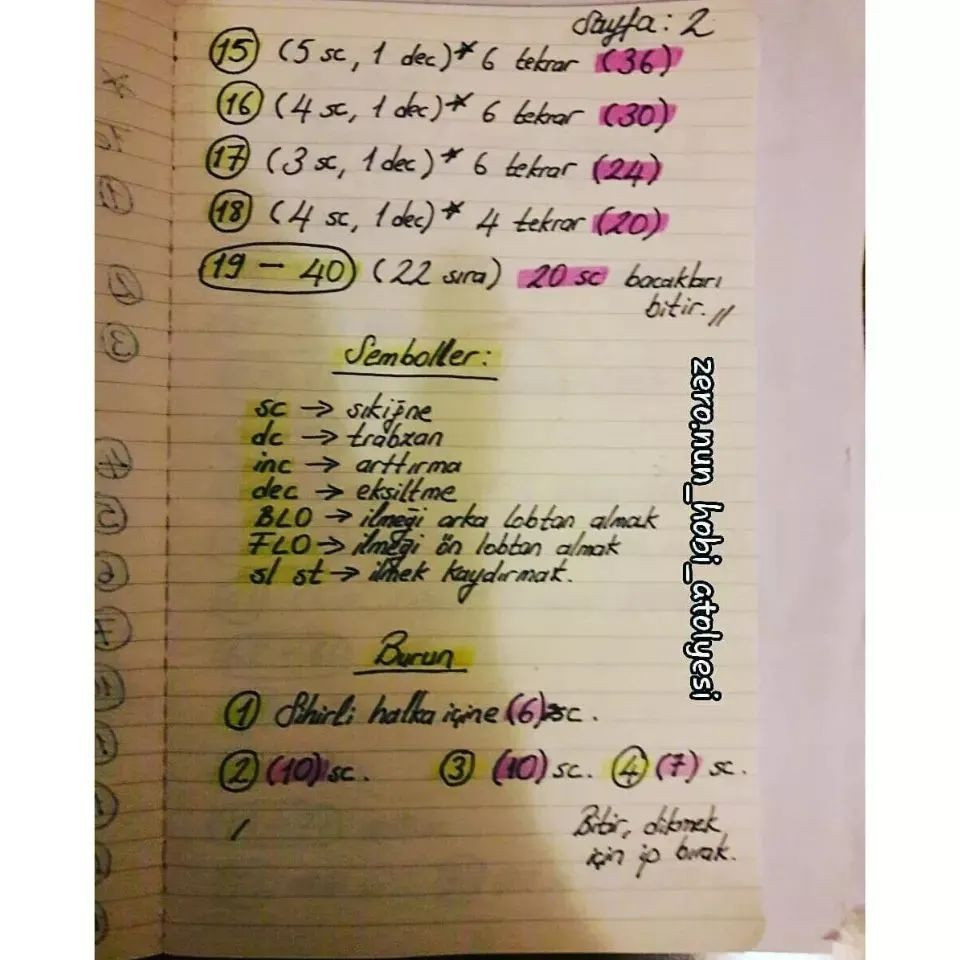 Sayfa: 2
15 (5 sc, 1 dec)* 6 tekrar (36)
16 (4 sc, 1 dec)* 6 tekrar (30)
17 (3 sc, 1 dec)* 6 tekrar (24)
18 (4 sc, 1 dec)* 4 tekrar (20)
19 - 40 (22 sıra) 20 sc bacakları
bitir.//
Semboller:
sc → sıkiğne
dc → trabzan
inc → arttırma
dec → eksiltme
BLO → ilmeği arka lobtan almak
FLO → ilmeği ön lobtan almak
sl st → ilmek kaydırmak.
Burun
1 Sihirli halka içine (6) sc.
2 (10) sc. 3 (10) sc. 4 (7) sc.
Bitir, dikmek
için ip bırak.
zero.nun_hobi_atolyesi